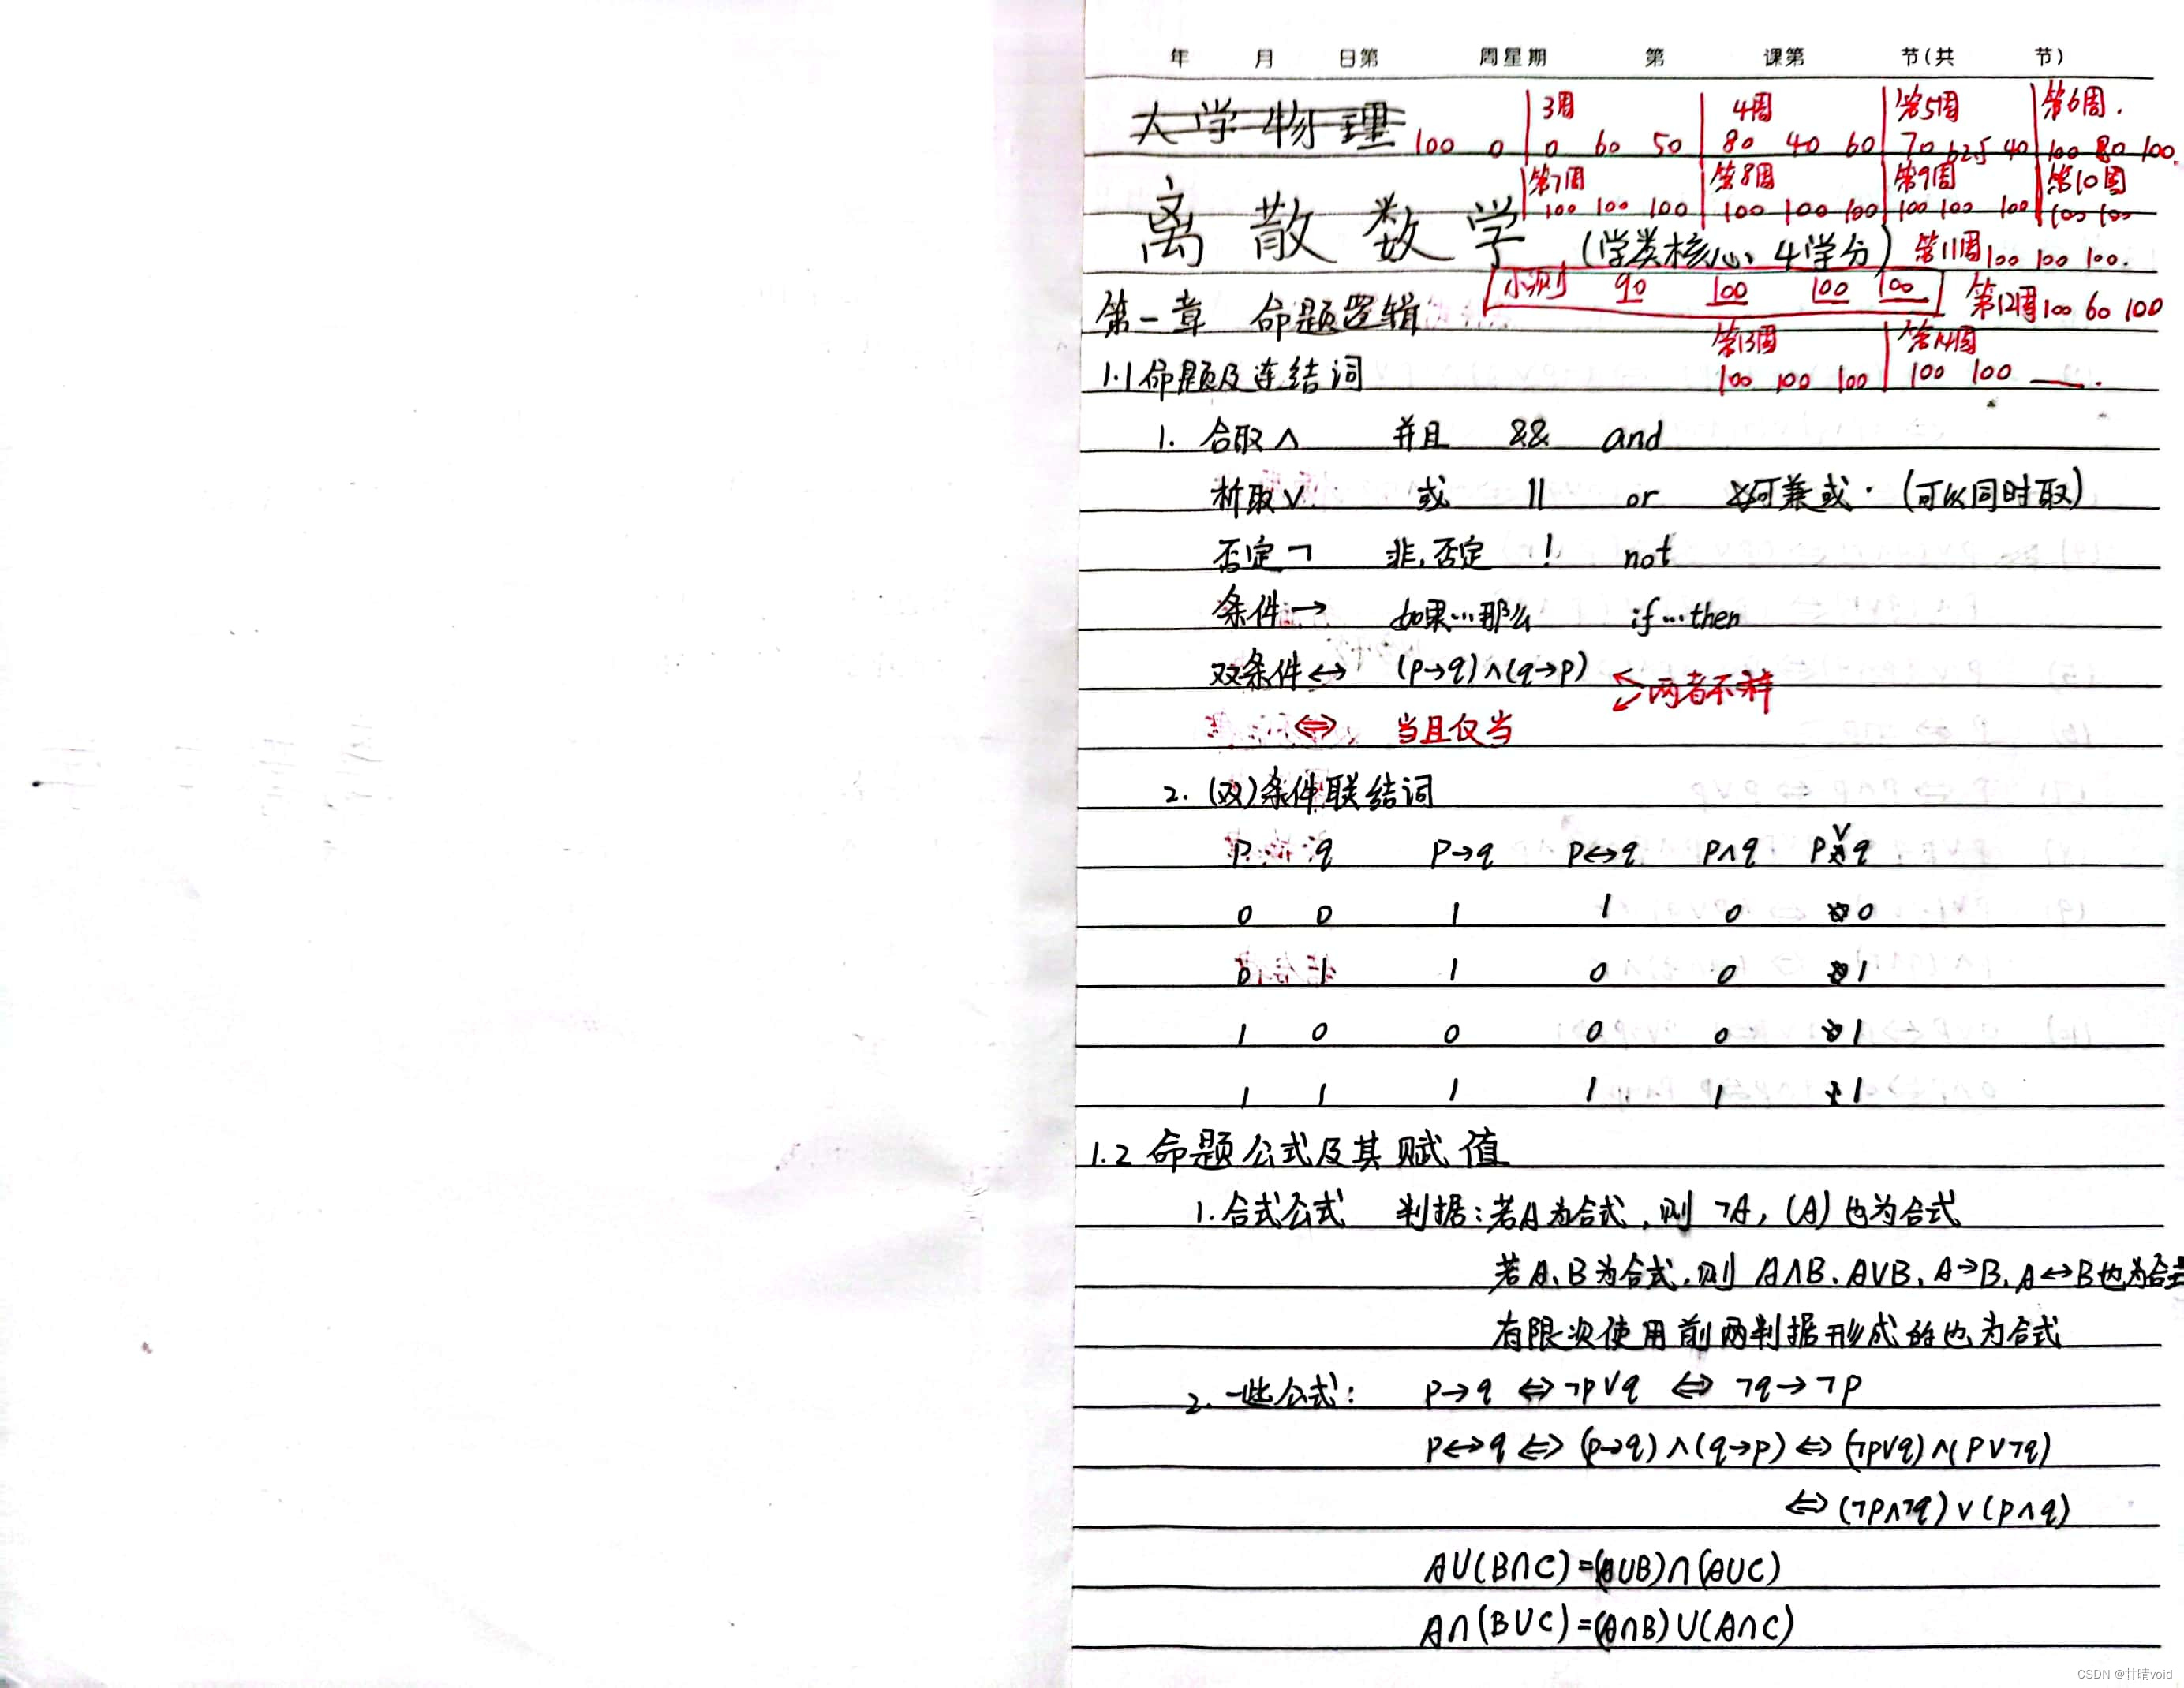 年 月 日第 周星期 第 课第 节(共 节)
3周 4周 第5周 第6周.
大学物理 100 0 0 60 50 80 40 60 70 62.5 40 100 80 100.
第7周 第8周 第9周 第10周
100 100 100 100 100 100 100 100 100 100 100
离散数学 (学类核心、4学分) 第11周 100 100 100.
小测 90 100 100 100 第12周 100 60 100
第一章 命题逻辑
第13周 第14周
1.1 命题及连结词 100 100 100 100 100 —.
1. 合取∧ 并且 && and
析取∨ 或 || or 可兼或. (可以同时取)
否定¬ 非,否定 ! not
条件→ 如果…那么 if…then
双条件↔ (p→q)∧(q→p)
两者不一样
⇔ 当且仅当
2. (双)条件联结词
p q p→q p↔q p∧q p∨q
0 0 1 1 0 0
0 1 1 0 0 1
1 0 0 0 0 1
1 1 1 1 1 1
1.2 命题公式及其赋值
1. 合式公式 判据:若A为合式,则 ¬A, (A)也为合式
若A、B为合式,则 A∧B、A∨B、A→B、A↔B也为合式
有限次使用前两判据形成的也为合式
2. 一些公式: p→q ⇔ ¬p∨q ⇔ ¬q→¬p
p↔q ⇔ (p→q)∧(q→p) ⇔ (¬p∨q)∧(p∨¬q)
⇔ (¬p∧¬q)∨(p∧q)
A∪(B∩C)=(A∪B)∩(A∪C)
A∩(B∪C)=(A∩B)∪(A∩C)
CSDN @甘晴void